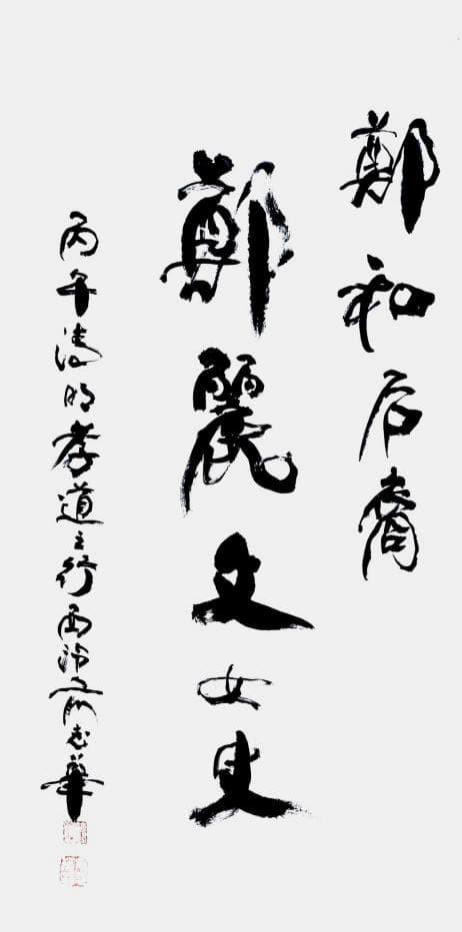 鄭和后裔
鄭麗文女史
丙午清明孝道之行西泠俞志華